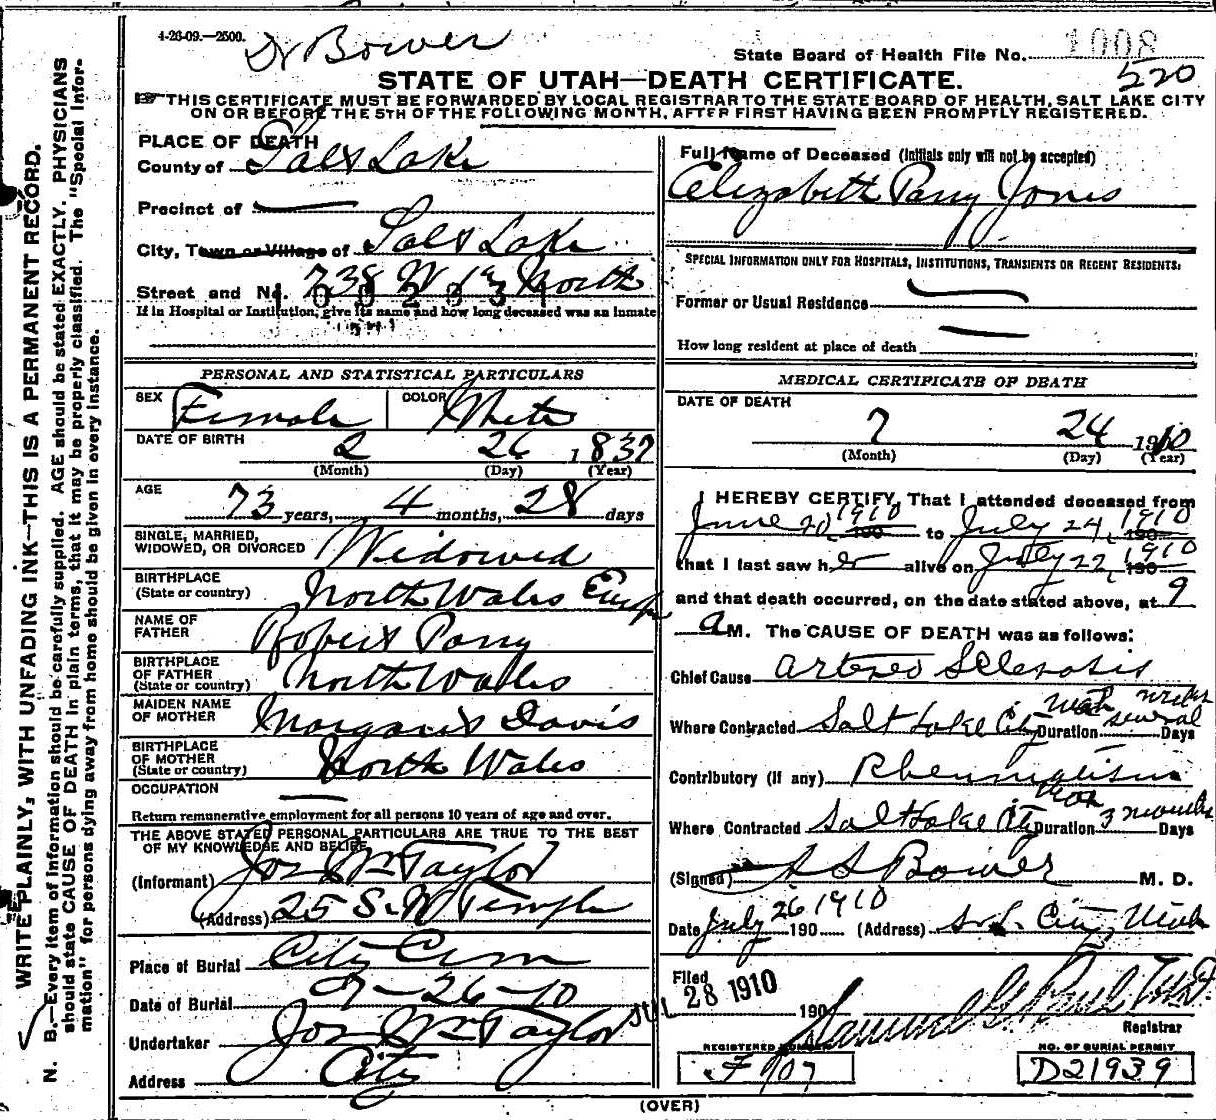 4-26-09.—2500.
Dr Bower
State Board of Health File No. 1008
520
STATE OF UTAH—DEATH CERTIFICATE.
THIS CERTIFICATE MUST BE FORWARDED BY LOCAL REGISTRAR TO THE STATE BOARD OF HEALTH, SALT LAKE CITY
ON OR BEFORE THE 5TH OF THE FOLLOWING MONTH, AFTER FIRST HAVING BEEN PROMPTLY REGISTERED.
WRITE PLAINLY, WITH UNFADING INK—THIS IS A PERMANENT RECORD.
N. B.—Every item of information should be carefully supplied. AGE should be stated EXACTLY. PHYSICIANS
should state CAUSE OF DEATH in plain terms, that it may be properly classified. The "Special Infor-
mation" for persons dying away from home should be given in every instance.
PLACE OF DEATH
County of Salt Lake
Precinct of —
City, Town or Village of Salt Lake
Street and No. 738 W 1st North
If in Hospital or Institution, give its name and how long deceased was an inmate
PERSONAL AND STATISTICAL PARTICULARS
SEX Female COLOR White
DATE OF BIRTH 2 26 1837
(Month) (Day) (Year)
AGE 73 years, 4 months, 28 days
SINGLE, MARRIED,
WIDOWED, OR DIVORCED Widowed
BIRTHPLACE
(State or country) North Wales
NAME OF
FATHER Robert Parry
BIRTHPLACE
OF FATHER
(State or country) North Wales
MAIDEN NAME
OF MOTHER Margaret Davis
BIRTHPLACE
OF MOTHER
(State or country) North Wales
OCCUPATION —
Return remunerative employment for all persons 10 years of age and over.
THE ABOVE STATED PERSONAL PARTICULARS ARE TRUE TO THE BEST
OF MY KNOWLEDGE AND BELIEF
(Informant) Jos Wm Taylor
(Address) 25 S. W Temple
Place of Burial City Cem
Date of Burial 7-26-10
Undertaker Jos Wm Taylor
Address City
Full Name of Deceased (Initials only will not be accepted)
Elizabeth Parry Jones
SPECIAL INFORMATION ONLY FOR HOSPITALS, INSTITUTIONS, TRANSIENTS OR RECENT RESIDENTS:
Former or Usual Residence —
How long resident at place of death —
MEDICAL CERTIFICATE OF DEATH
DATE OF DEATH
7 24 1910
(Month) (Day) (Year)
I HEREBY CERTIFY, That I attended deceased from
June 20, 1910 190 to July 24, 1910 190
that I last saw her alive on July 22, 1910 190
and that death occurred, on the date stated above, at 9
A M. The CAUSE OF DEATH was as follows:
Chief Cause Arterio Sclerosis
Where Contracted Salt Lake City Utah Duration several weeks Days
Contributory (if any) Rheumatism
Where Contracted Salt Lake City Utah Duration 3 months Days
(Signed) S S Bower M. D.
Date July 26 1910 190 (Address) S. L. City, Utah
Filed JUL 28 1910 190
Samuel G. Paul
Registrar
REGISTERED NUMBER
F 907
NO. OF BURIAL PERMIT
D21939
(OVER)